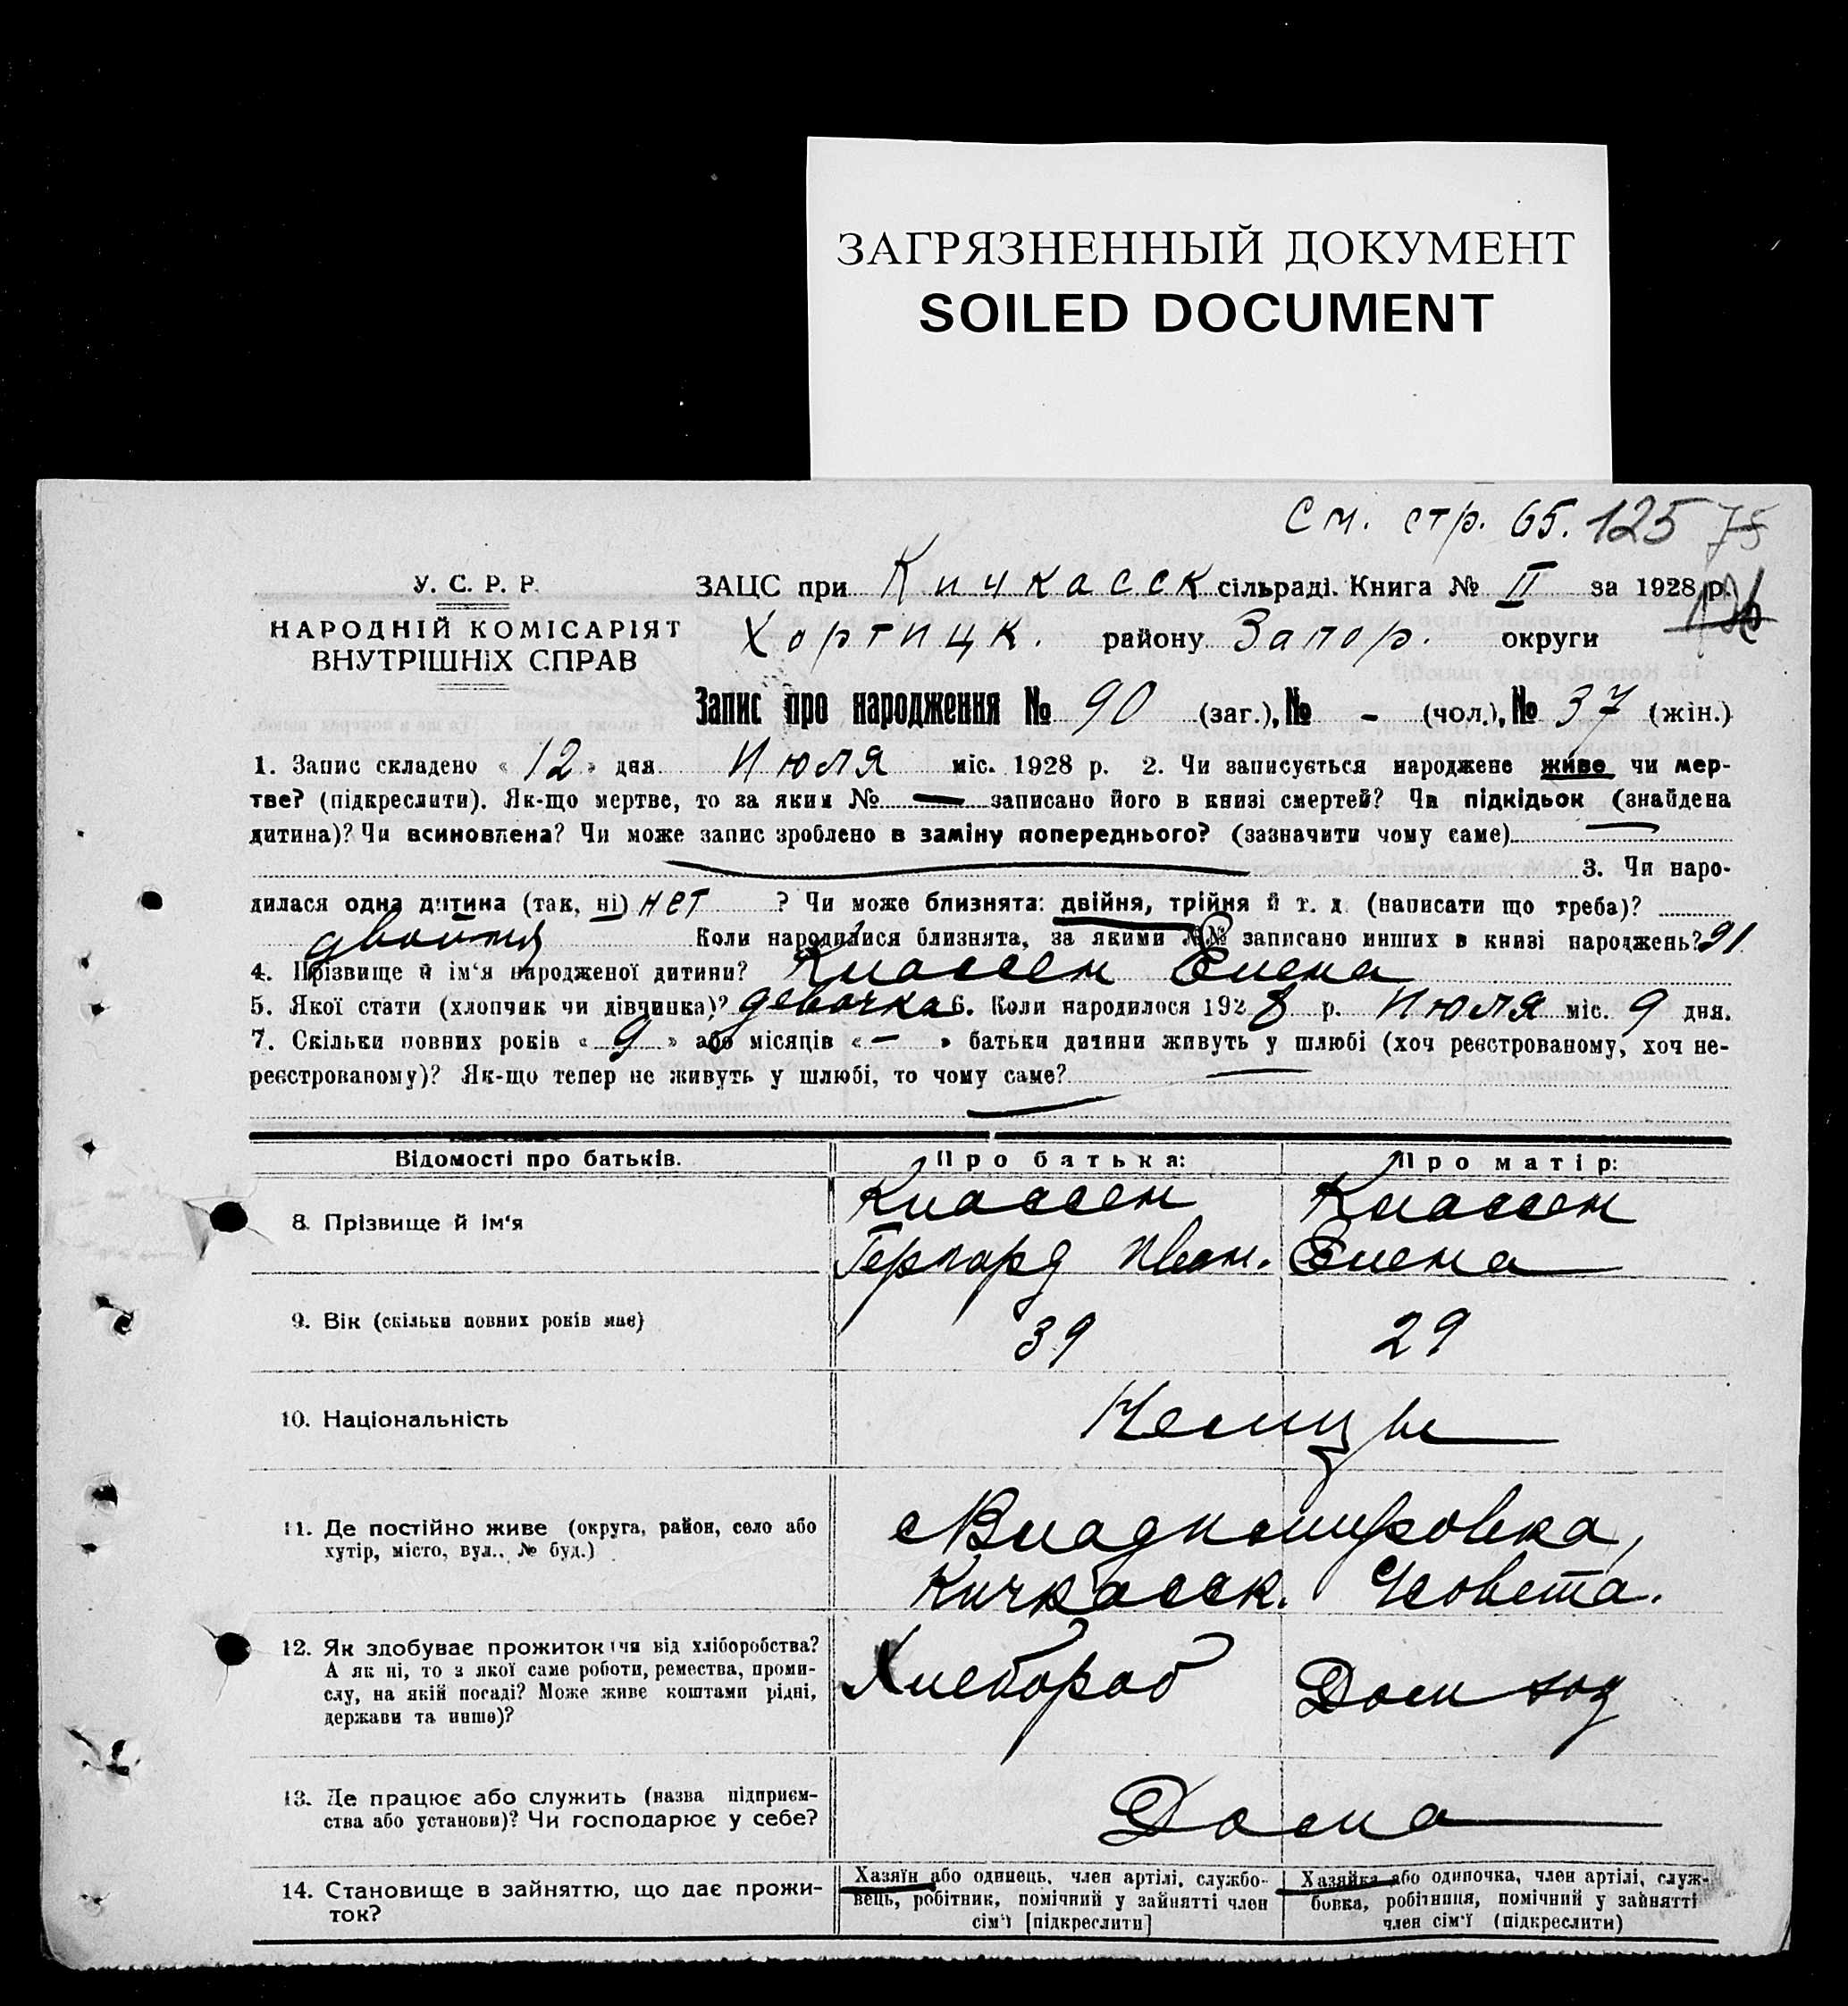 ЗАГРЯЗНЕННЫЙ ДОКУМЕНТ
SOILED DOCUMENT
См. стр. 65. 125 75
У. С. Р. Р.
НАРОДНІЙ КОМІСАРІЯТ
ВНУТРІШНІХ СПРАВ
ЗАЦС при Кичкасск сільраді. Книга № II за 1928 р.
Хортицк. району Запор. округи
Запис про народження № 90 (заг.), № - (чол.), № 37 (жін.)
1. Запис складено « 12 » дня Июля міс. 1928 р. 2. Чи записується народжене живе чи мер-
тве? (підкреслити). Як-що мертве, то за яким № — записано його в книзі смертей? Чи підкідьок (знайдена
дитина)? Чи всиновлена? Чи може запис зроблено в заміну попереднього? (зазначити чому саме) —
3. Чи наро-
дилася одна дитина (так, ні) нет ? Чи може близнята: двійня, трійня й т. д. (написати що треба)?
двойня Коли народилися близнята, за якими №№ записано инших в книзі народжень? 91.
4. Прізвище й ім'я народженої дитини? Классен Елена
5. Якої статі (хлопчик чи дівчинка)? девочка 6. Коли народилося 1928 р. Июля міс. 9 дня.
7. Скільки повних років « 9 » або місяців « — » батьки дитини живуть у шлюбі (хоч реєстрованому, хоч не-
реєстрованому)? Як-що тепер не живуть у шлюбі, то чому саме? —
Відомості про батьків. Про батька: Про матір:
8. Прізвище й ім'я
Классен Классен
Герпард Иван. Елена
9. Вік (скільки повних років має) 39 29
10. Національність Немцы
11. Де постійно живе (округа, район, село або
хутір, місто, вул., № буд.)
с Владимировка,
Кичкасск. с/совета.
12. Як здобуває прожиток (чи від хліборобства?
А як ні, то з якої саме роботи, ремества, проми-
слу, на якій посаді? Може живе коштами рідні,
держави та инше)?
Хлебороб Дом хоз
13. Де працює або служить (назва підприєм-
ства або установи)? Чи господарює у себе?
Дома
14. Становище в зайняттю, що дає прожи-
ток?
Хазяїн або одинець, член артілі, службо-
вець, робітник, помічний у зайнятті член
сім'ї [підкреслити]
Хазяйка або одиночка, член артілі, служ-
бовка, робітниця, помічний у зайнятті
член сім'ї (підкреслити)